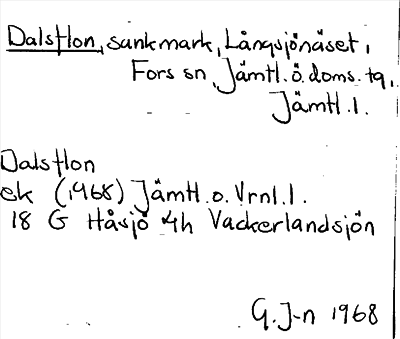 Dalsflon, sankmark, Långsjönäset,
Fors sn, Jämtl. ö. doms. tg,
Jämtl. l.
Dalsflon
ek (1968) Jämtl. o. Vrnl. l.
18 G Håsjö 4h Vackerlandsjön
G. J-n 1968